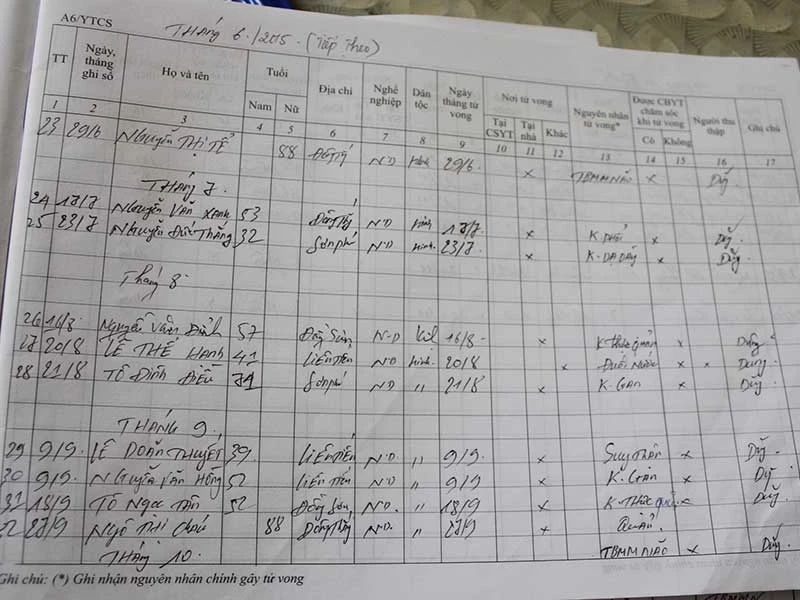 A6/YTCS
THÁNG 6./2015.(Tiếp Theo)
TT Ngày, tháng ghi sổ Họ và tên Tuổi Địa chỉ Nghề nghiệp Dân tộc Ngày tháng tử vong Nơi tử vong Nguyên nhân tử vong* Được CBYT chăm sóc khi tử vong Người thu thập Ghi chú
Nam Nữ Tại CSYT Tại nhà Khác Có Không
1 2 3 4 5 6 7 8 9 10 11 12 13 14 15 16 17
23 29/6 Nguyễn Thị Tề 88 N.D Kinh 29/6 x TBMM NÃO x Dũng
THÁNG 7.
24 17/7 Nguyễn Văn Xanh 53 N.D Kinh 17/7 x K.PHỔI x Dũng
25 23/7 Nguyễn Đức Thắng 32 Sơn phú N.D Kinh 23/7 x K-DẠ DÀY x Dũng
Tháng 8
26 16/8 Nguyễn Văn 57 N-D 16/8 x K thực quản x Dũng
27 20/8 LÊ THẾ HẠNH 41 LIÊN TIẾN N.D Kinh 20/8 x Đuối Nước x x Dũng
28 21/8 TÔ ĐÌNH ĐIỂU Sơn phú N.D " 21/8 x K.GAN x Dũng
THÁNG 9.
29 9/9 LÊ DOÃN THUYẾT 39 LIÊN TIẾN N.D " 9/9 x SUY THẬN x Dũng
30 9/9. NGUYỄN VĂN HỒNG 52 LIÊN TIẾN N.D " 9/9 x K.GAN x Dũng
31 18/9 TÔ Ngọc 52 Đồng Sơn N.D. " 18/9 x K-THỰC QUẢN x Dũng
27/9 NGÔ THỊ 88 N.D. " 27/9 x
THÁNG 10. TBMM NÃO x Dũng
Ghi chú: (*) Ghi nhận nguyên nhân chính gây tử vong